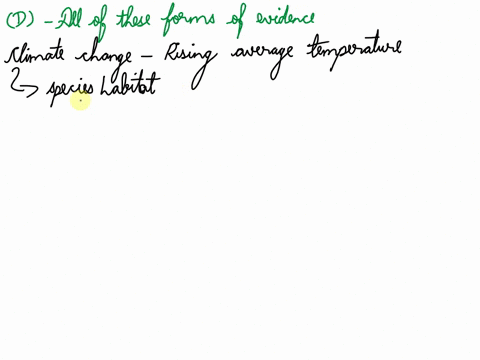 (D) - All of these forms of evidence
Climate change - Rising average temperature
↳ species habitat